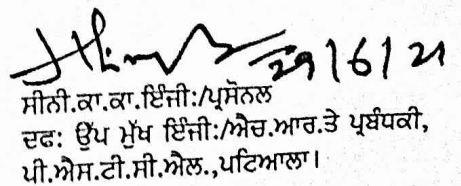 29/6/21
ਸੀਨੀ.ਕਾ.ਕਾ.ਇੰਜੀ:/ਪ੍ਰਸੋਨਲ
ਦਫ: ਉੱਪ ਮੁੱਖ ਇੰਜੀ:/ਐਚ.ਆਰ.ਤੇ ਪ੍ਰਬੰਧਕੀ,
ਪੀ.ਐਸ.ਟੀ.ਸੀ.ਐਲ.,ਪਟਿਆਲਾ।